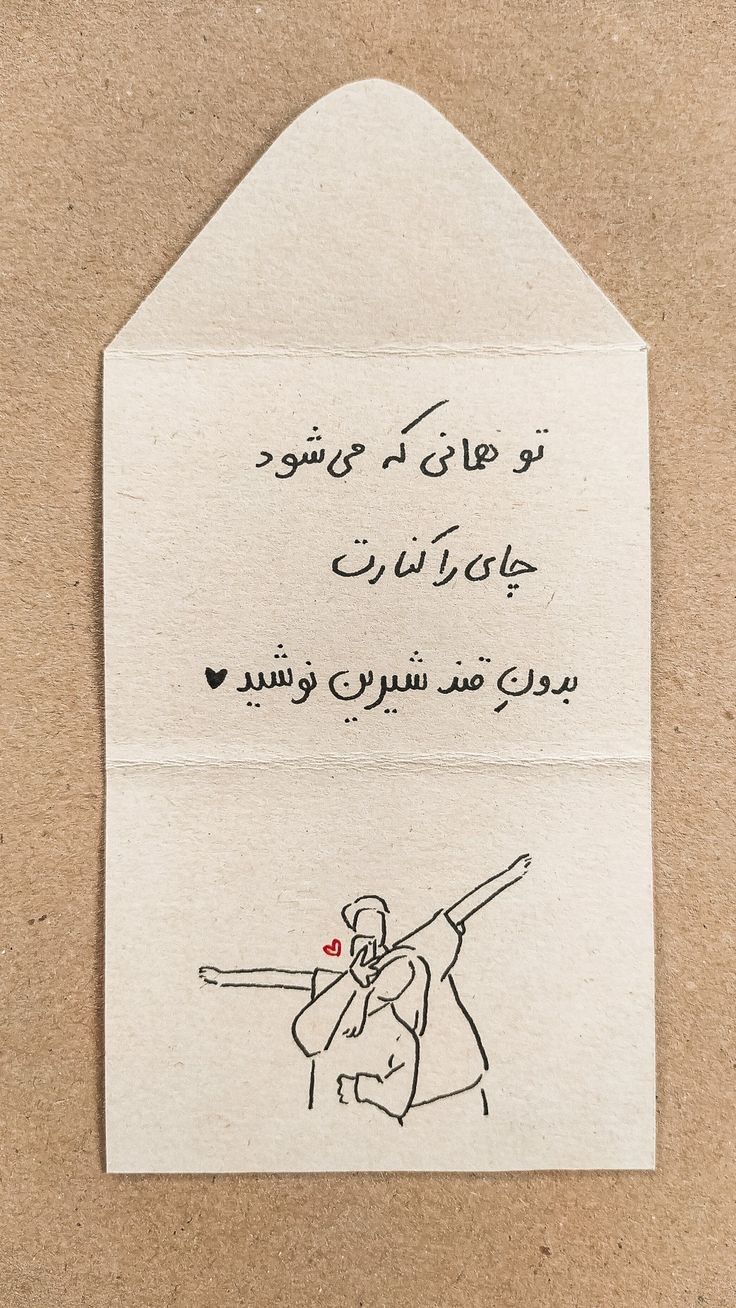 تو همانی که می‌شود
چای را کنارت
بدونِ قند شیرین نوشید ♥